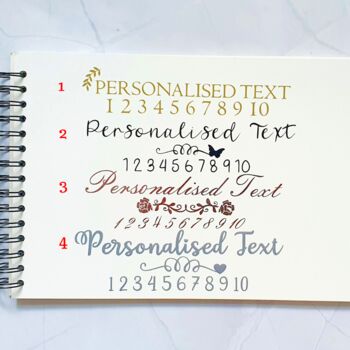 1 PERSONALISED TEXT
1 2 3 4 5 6 7 8 9 10
2 Personalised Text
1 2 3 4 5 6 7 8 9 10
3 Personalised Text
1 2 3 4 5 6 7 8 9 10
4 Personalised Text
1 2 3 4 5 6 7 8 9 10